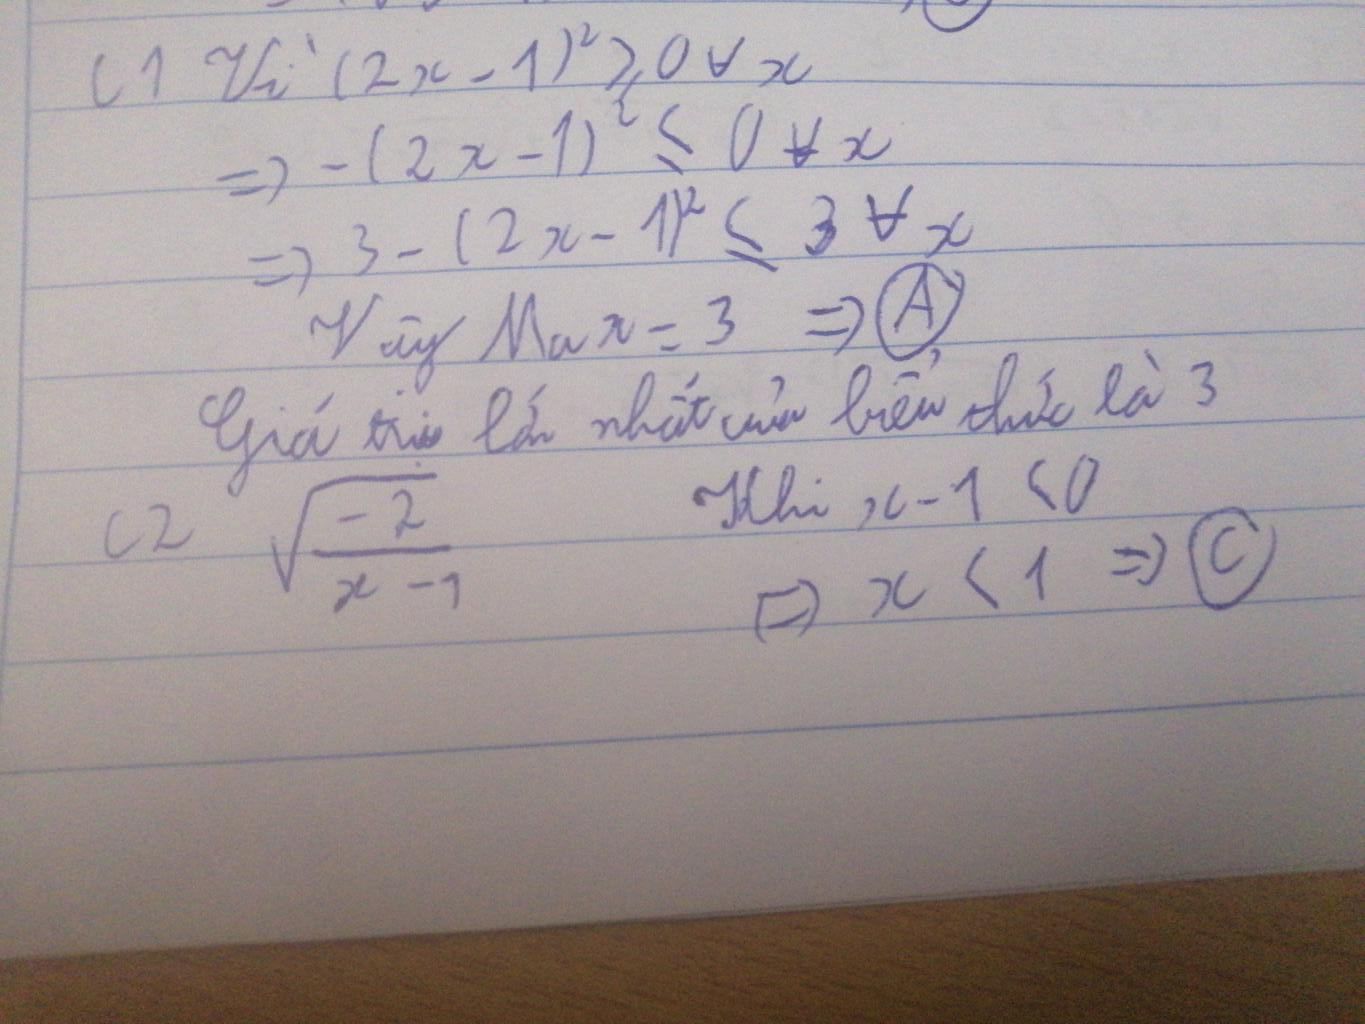 C1 Vì (2x-1)² ≥ 0 ∀ x
=> -(2x-1)² ≤ 0 ∀ x
=> 3-(2x-1)² ≤ 3 ∀ x
Vậy Max = 3 => A
Giá trị lớn nhất của biểu thức là 3
C2 √(-2/(x-1)) Khi x-1 < 0
=> x < 1 => C